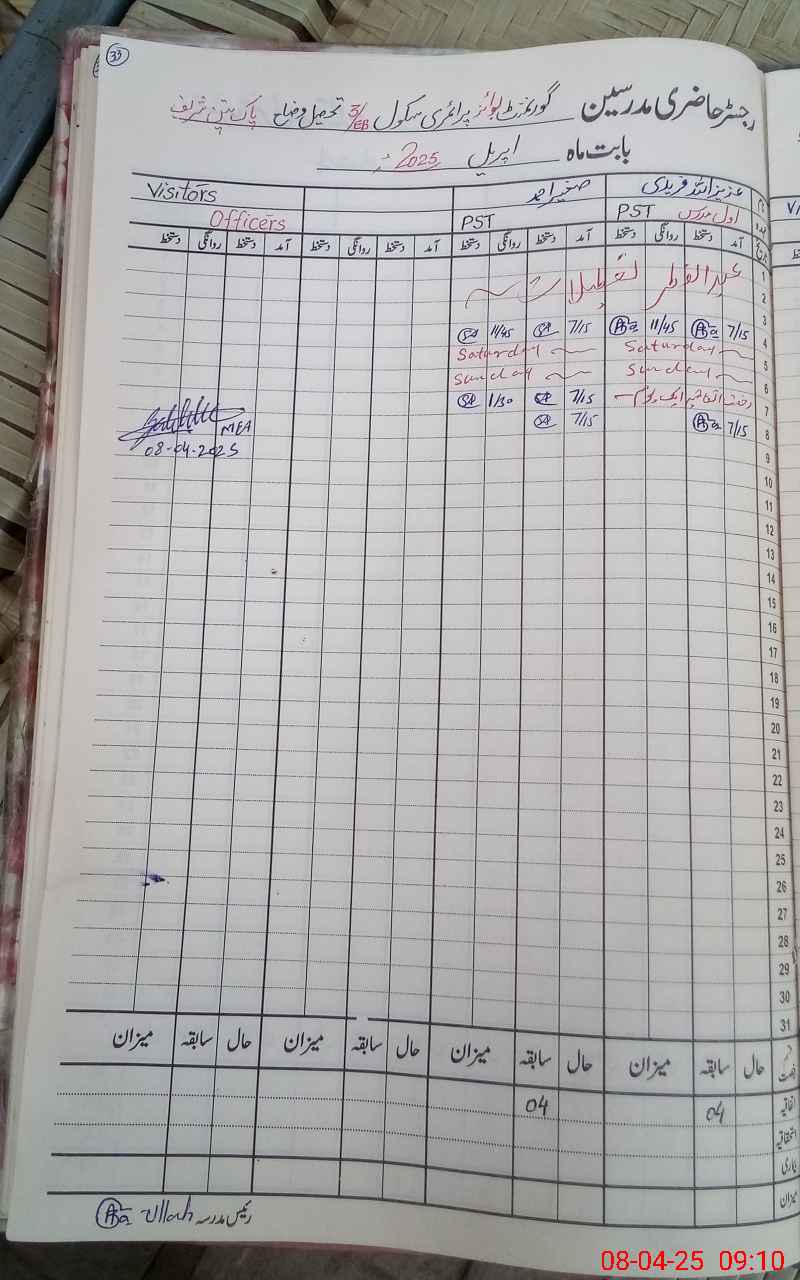 33
رجسٹر حاضری مدرسین گورنمنٹ بوائز پرائمری سکول 3/EB تحصیل و ضلع پاک پتن شریف
بابت ماہ اپریل 2025ء
نام عزیز اللہ فریدی صغیر احمد Visitors
عہدہ اول مدرس PST PST Officers
تاریخ آمد دستخط روانگی دستخط آمد دستخط روانگی دستخط آمد دستخط روانگی دستخط آمد دستخط روانگی دستخط
1 عیدالفطر تعطیلات
2
3
4 7/15 11/45 7/15 11/45
5 Saturday Saturday
6 Sunday Sunday
7 رخصت اتفاقیہ ایک یوم 7/15 1/30
8 7/15 7/15 MEA
08-04-2025
9
10
11
12
13
14
15
16
17
18
19
20
21
22
23
24
25
26
27
28
29
30
31
حال سابقہ میزان حال سابقہ میزان حال سابقہ میزان حال سابقہ میزان
اتفاقیہ 04 04
استحقاقیہ
بیماری
میزان
رئیس مدرسہ Aziz-Ullah
08-04-25 09:10